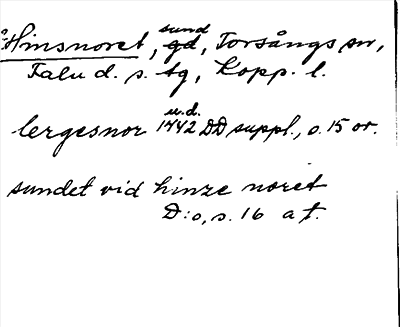 Hinsnoret, sund gd, Torsångs sn,
Falu d. s. tg, Kopp. l.
lergesnor u.d. 1442 DD suppl., s. 15 or.
sundet vid hinze noret
D:o, s. 16 at.